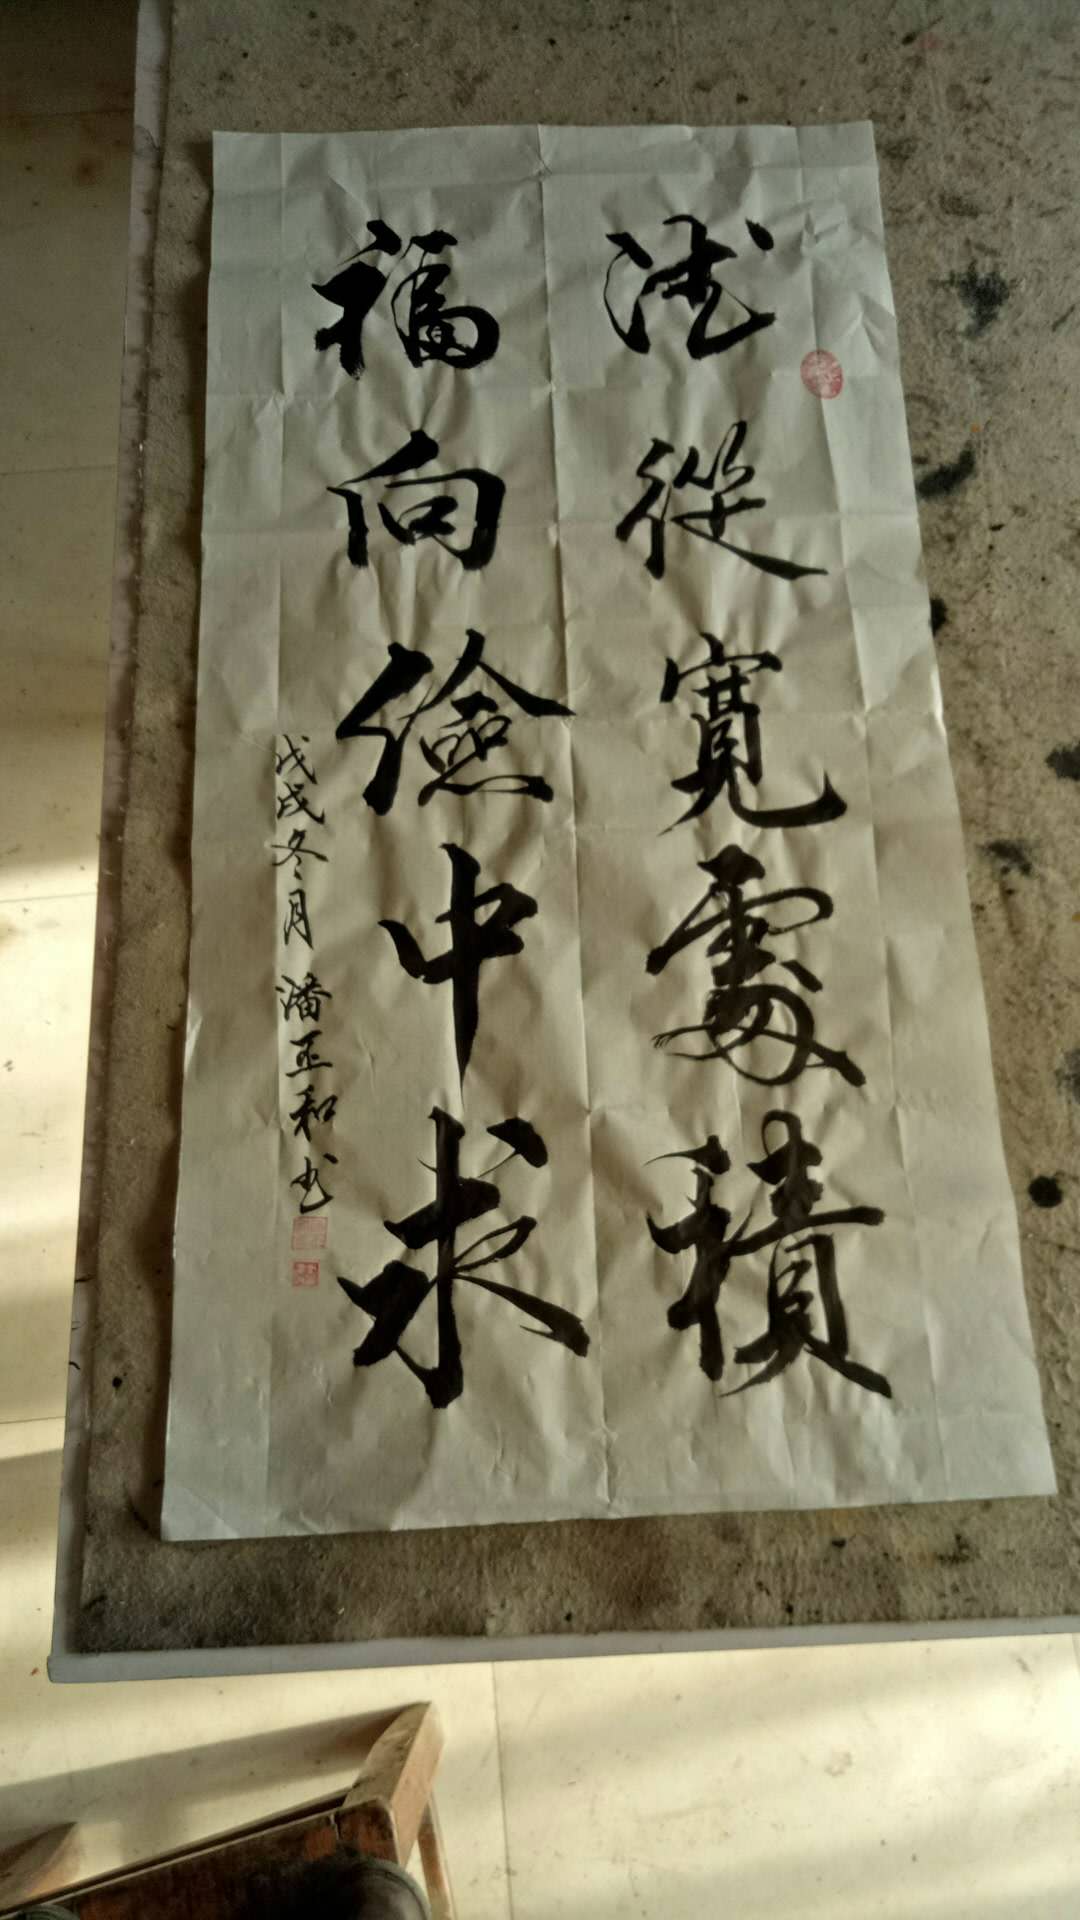 德從寬處積
福向儉中求
戊戌冬月潘正和书